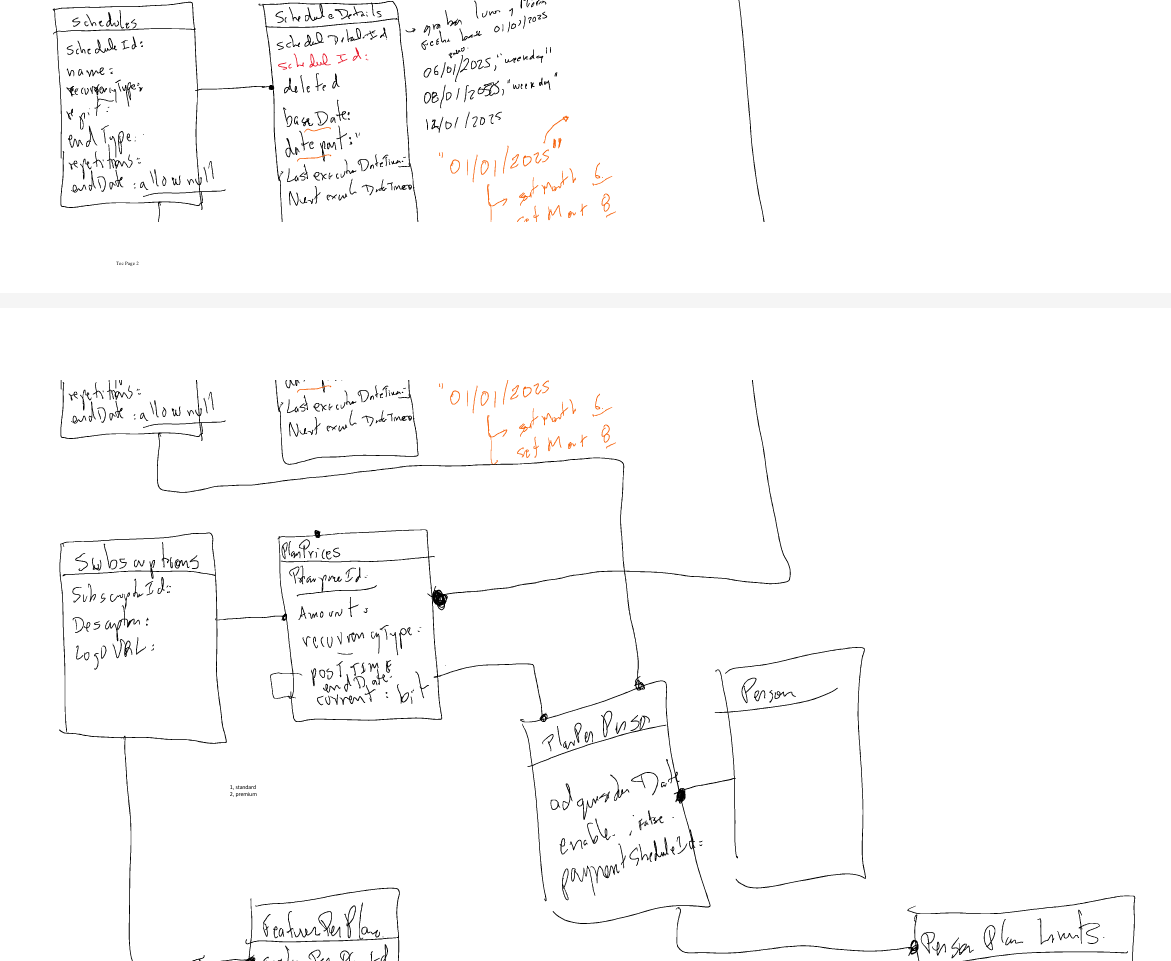 Schedules
Schedule Id:
name:
recurrencyType:
repit:
endType:
repetitions:
endDate: allow null
ScheduleDetails
Schedul Detail Id
Schedul Id:
deleted
baseDate:
datepart:"
Last execution DateTime:
Next execut DateTime
01/01/2025
06/01/2025, "weekday"
08/01/2025, "weekday"
12/01/2025
"01/01/2025"
set Month 6
set Mont 8
Toc Page 2
repetitions:
endDate: allow null
Last execution DateTime:
Next execut DateTime
"01/01/2025
set Month 6
set Mont 8
Subscriptions
Subscriptn Id:
Description:
Logo URL:
PlanPrices
Amount:
recurrencyType:
POSTTIME
endDate:
current: bit
PlanPer Person
adquisition Date
enable: False.
paymentSheduleId:
Person
1, standard
2, premium
FeaturesPerPlans
Person Plan Limits.